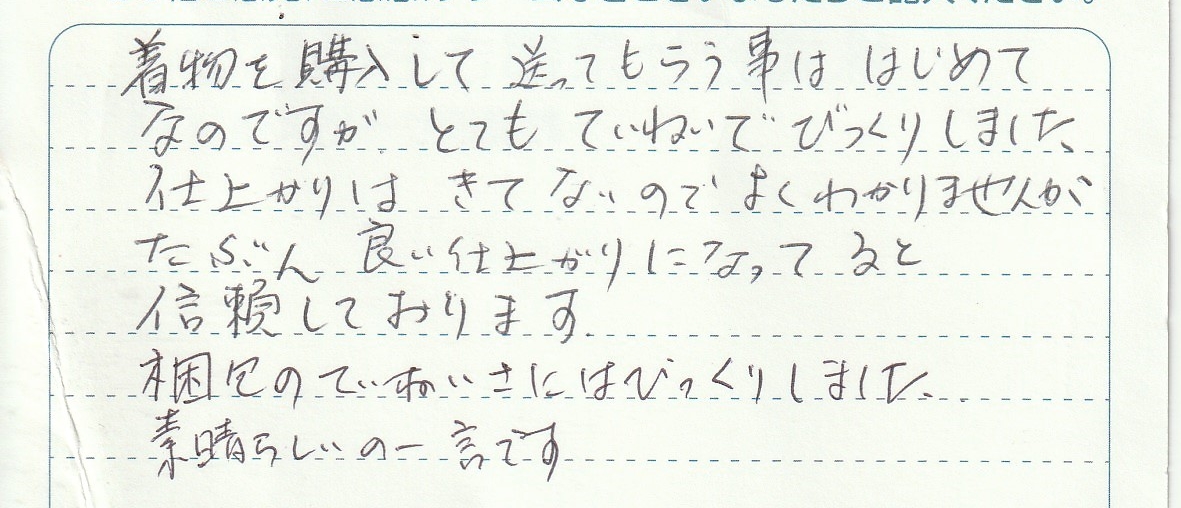 着物を購入して送ってもらう事ははじめて
なのですが とても ていねいで びっくりしました、
仕上がりは きてないので よくわかりませんが
たぶん 良い仕上がりになってると
信頼しております.
梱包のていねいさにはびっくりしました、
素晴らしいの一言です